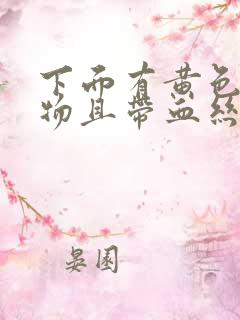 下面有黄色
物且带血丝
晏園